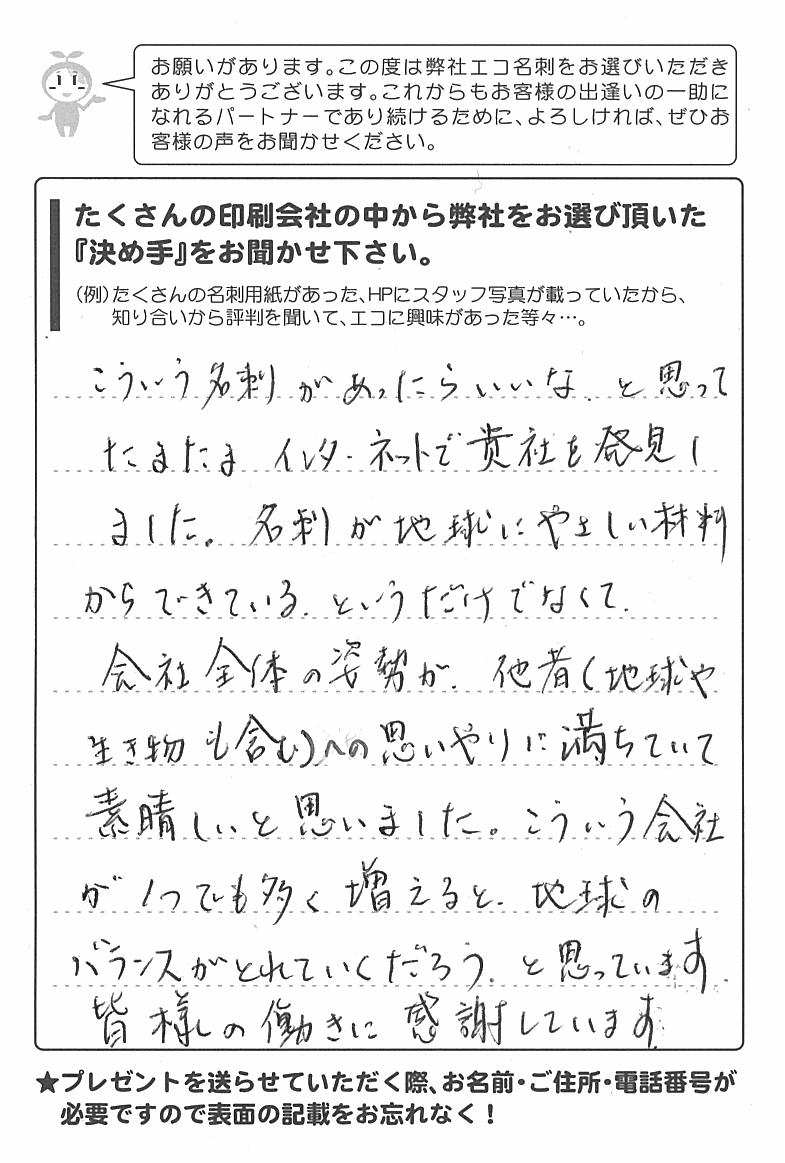 お願いがあります。この度は弊社エコ名刺をお選びいただき
ありがとうございます。これからもお客様の出逢いの一助に
なれるパートナーであり続けるために、よろしければ、ぜひお
客様の声をお聞かせください。
たくさんの印刷会社の中から弊社をお選び頂いた
『決め手』をお聞かせ下さい。
（例）たくさんの名刺用紙があった、HPにスタッフ写真が載っていたから、
知り合いから評判を聞いて、エコに興味があった等々…。
こういう名刺があったらいいな、と思って
たまたまインターネットで貴社を発見し
ました。名刺が地球にやさしい材料
からできている、というだけでなくて、
会社全体の姿勢が、他者（地球や
生き物も含む）への思いやりに満ちていて
素晴しいと思いました。こういう会社
が1つでも多く増えると、地球の
バランスがとれていくだろう、と思っています。
皆様の働きに感謝しています。
★プレゼントを送らせていただく際、お名前・ご住所・電話番号が
必要ですので表面の記載をお忘れなく！